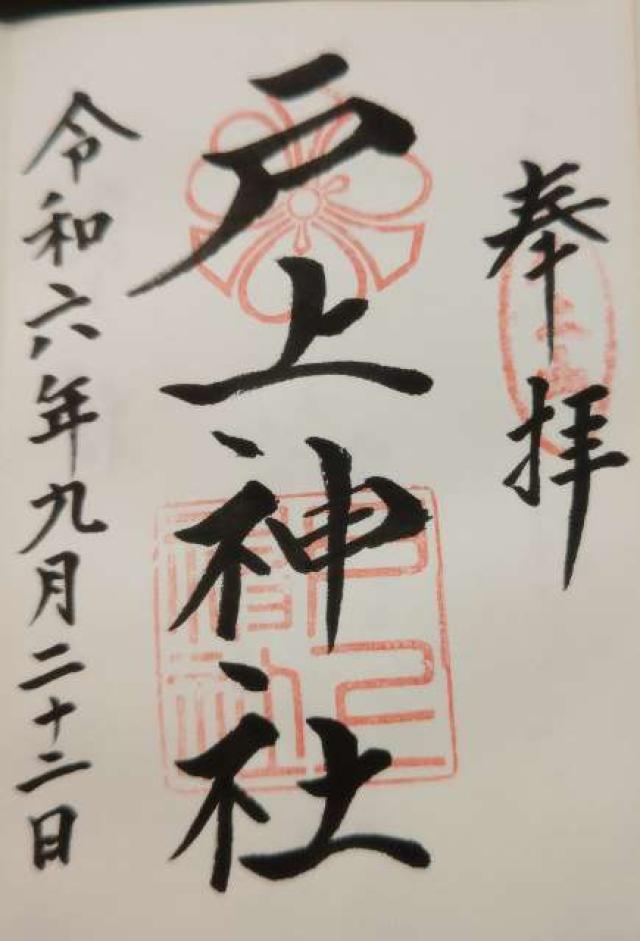 奉拝
戸上神社
令和六年九月二十二日